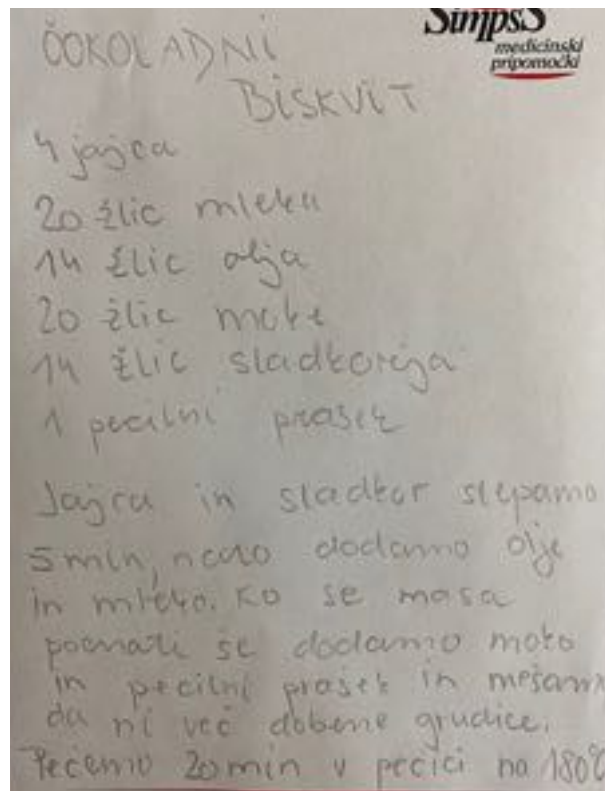 SimpsS
medicinski
pripomočki
ČOKOLADNI
BISKVIT
4 jajca
20 žlic mleka
14 žlic olja
20 žlic moke
14 žlic sladkorja
1 pecilni prašek
Jajca in sladkor stepamo
5 min, nato dodamo olje
in mleko. Ko se masa
se dodamo moko
in pecilni prašek in mešamo
da ni več dobene grudice.
Pečemo 20 min v pečici na 180°C